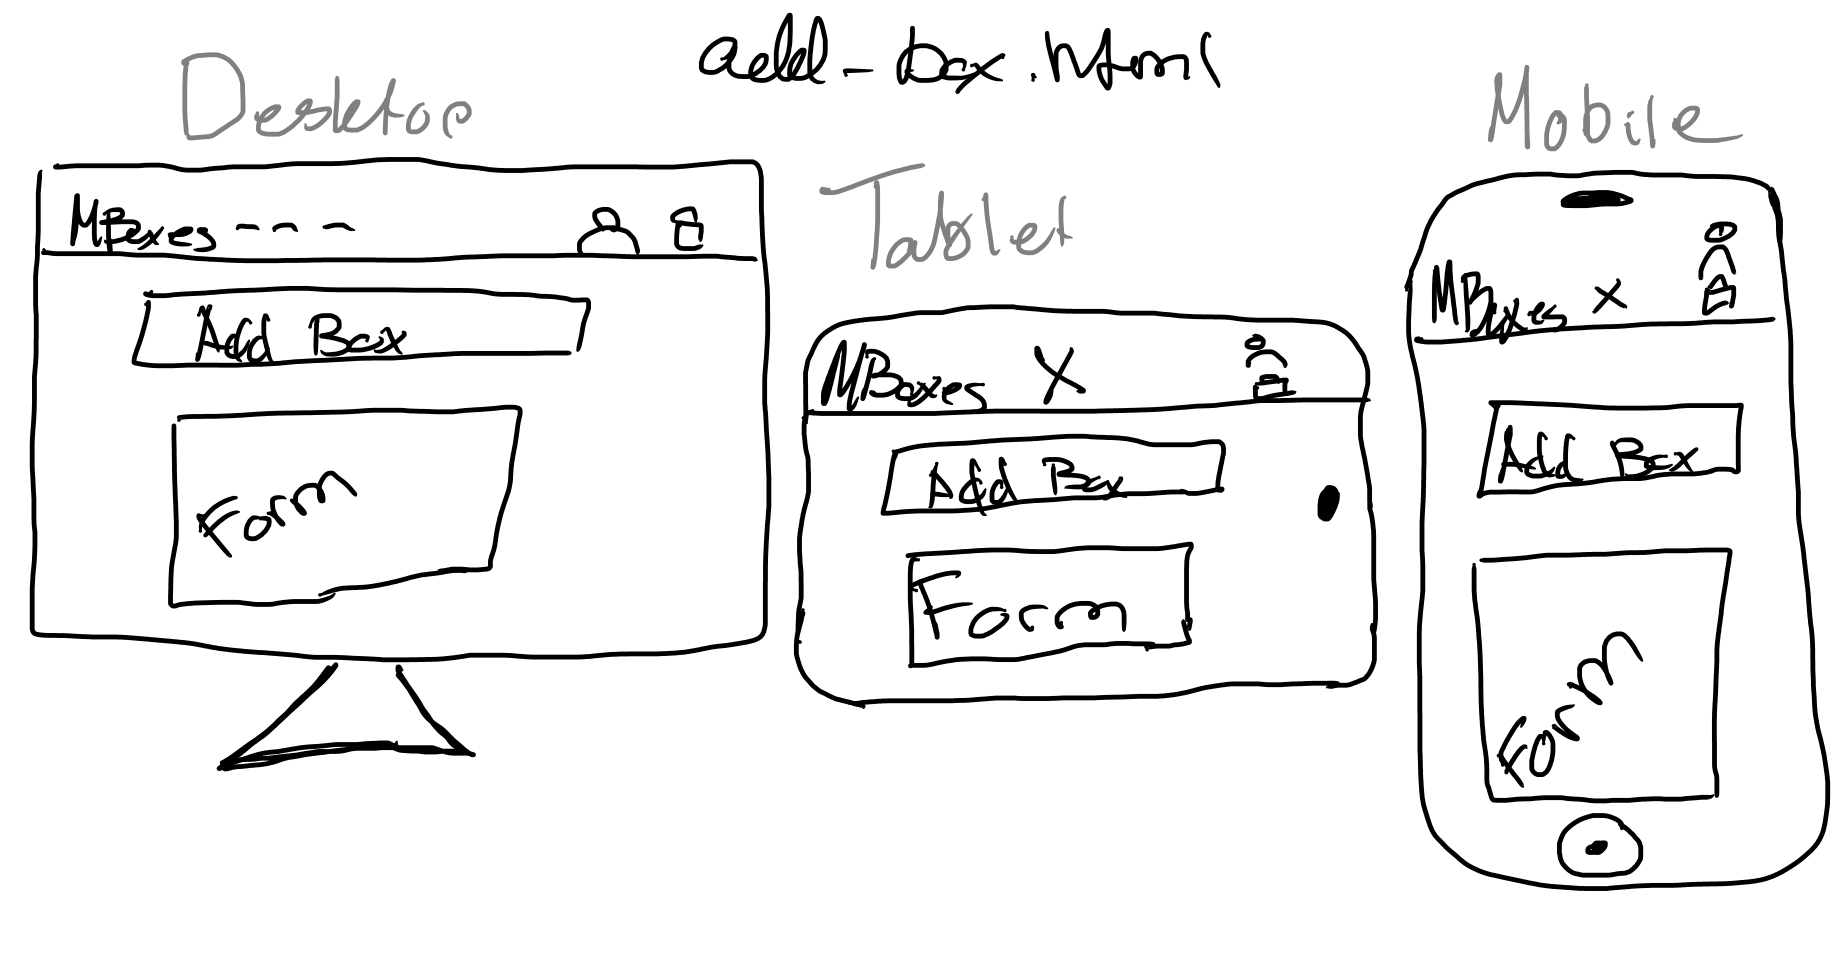 add-box.html
Desktop
MBoxes - - -
Add Box
Form
Tablet
MBoxes X
Add Box
Form
Mobile
MBoxes X
Add Box
Form